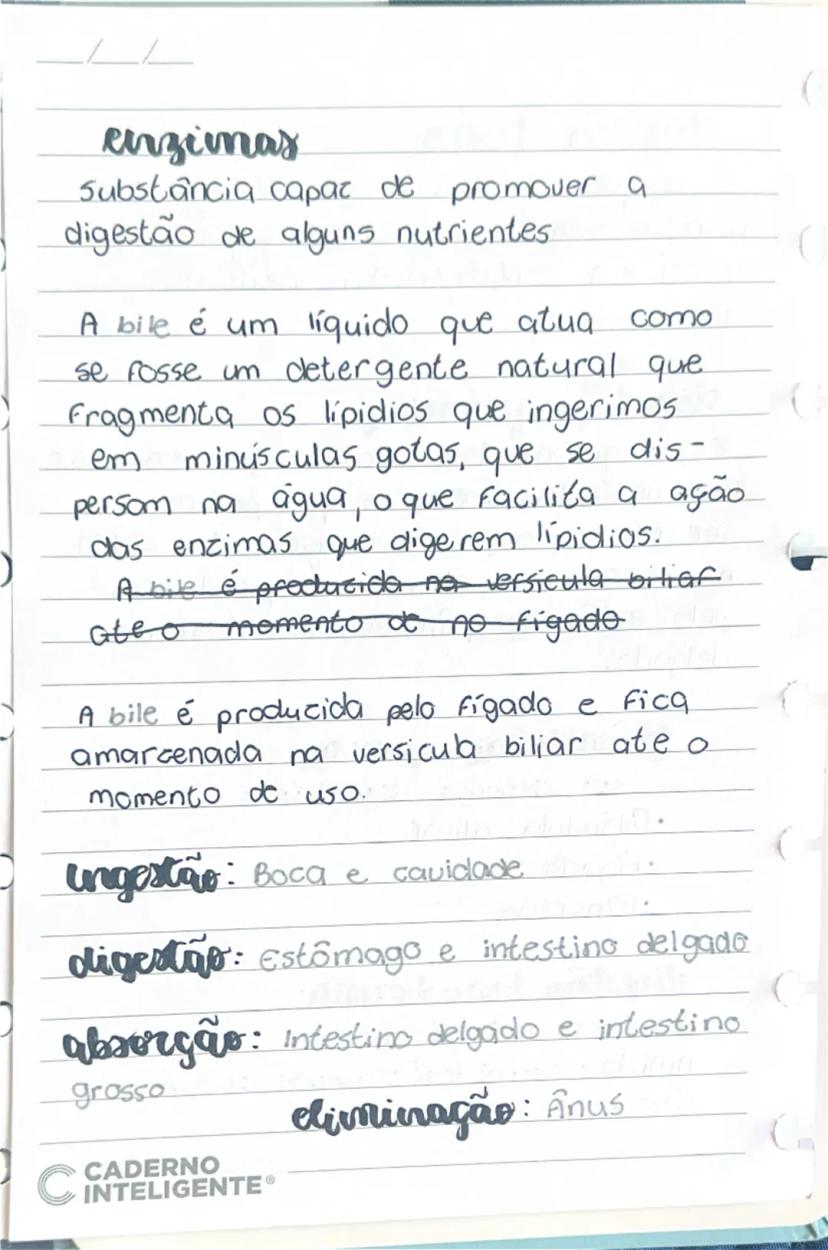 __/__/__
enzimas
substância capaz de promover a
digestão de alguns nutrientes
A bile é um líquido que atua como
se fosse um detergente natural que
fragmenta os lípidios que ingerimos
em minúsculas gotas, que se dis-
persam na água, o que facilita a ação
das enzimas que digerem lípidios.
A bile é producida na versícula biliar
ate o momento de no fígado
A bile é producida pelo fígado e fica
amarzenada na versicula biliar ate o
momento de uso.
ingestão: Boca e cavidade
digestão: Estômago e intestino delgado
absorção: Intestino delgado e intestino
grosso
eliminação: Ânus
CADERNO
INTELIGENTE®